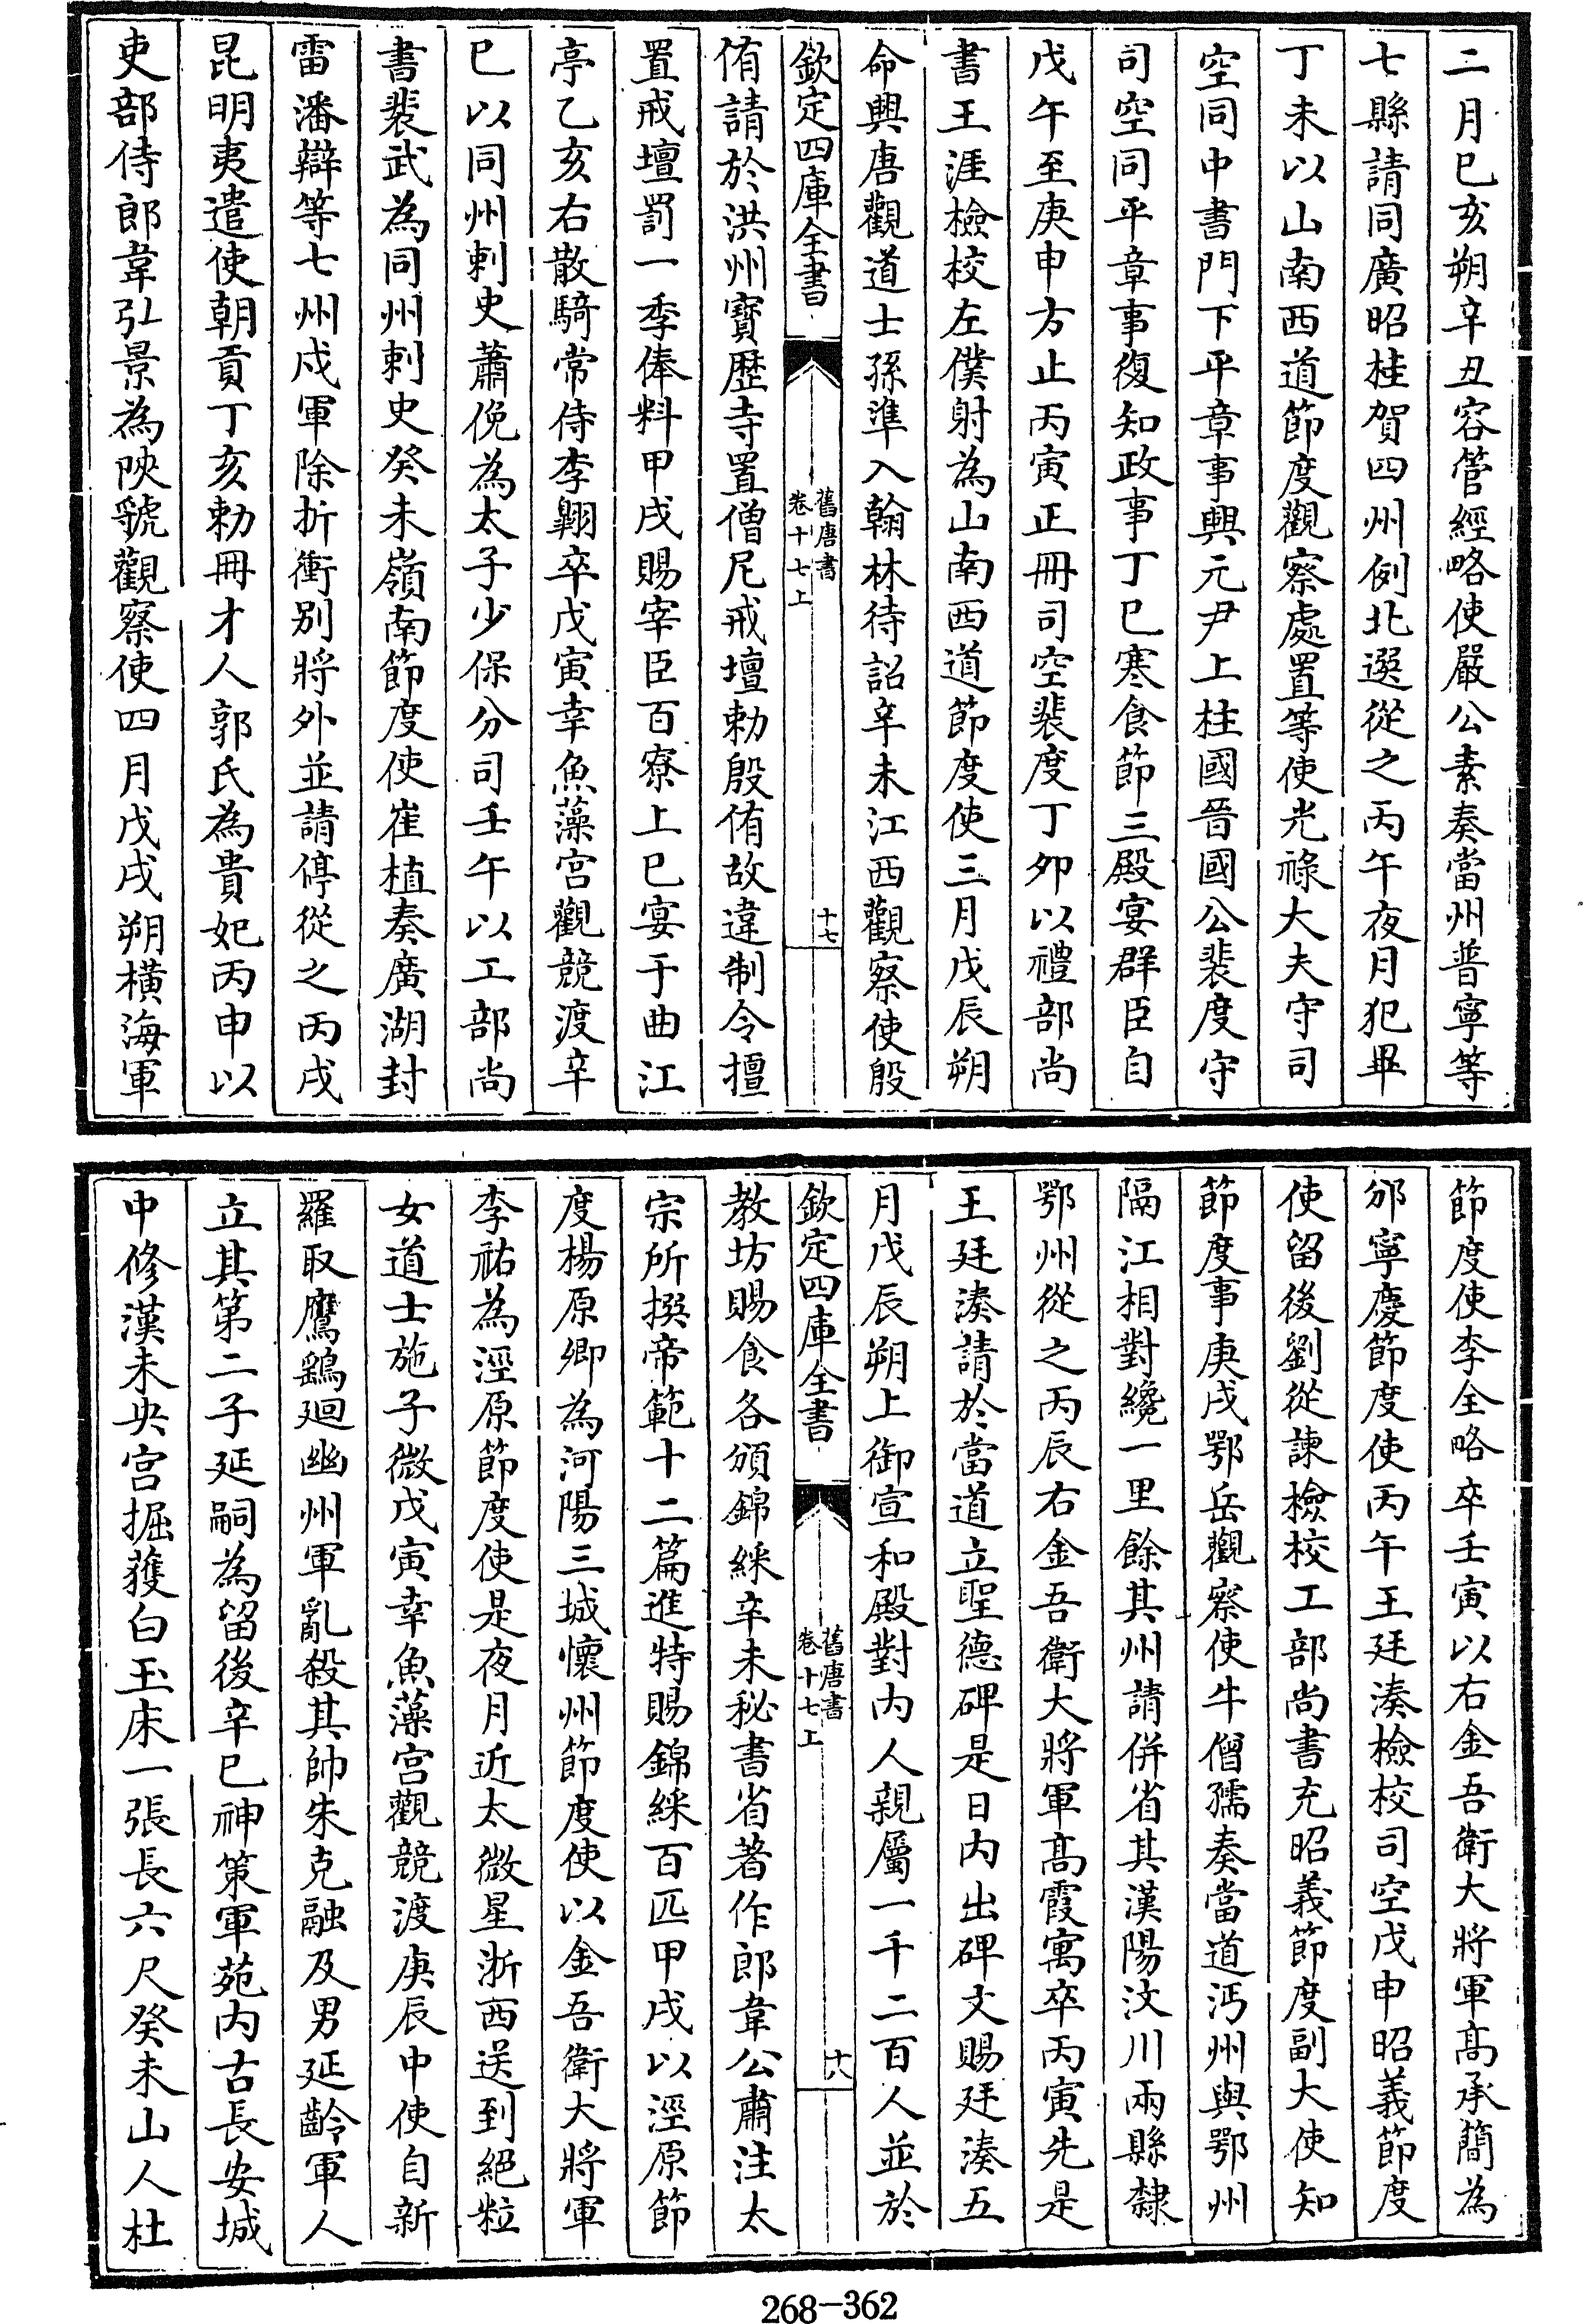 二月巳亥朔辛丑容管經略使嚴公素奏當州普寧等
七縣請同廣昭桂賀四州例北選從之丙午夜月犯畢
丁未以山南西道節度觀察處置等使光祿大夫守司
空同中書門下平章事興元尹上柱國晉國公裴度守
司空同平章事復知政事丁巳寒食節三殿宴群臣自
戊午至庚申方止丙寅正冊司空裴度丁夘以禮部尚
書王涯檢校左僕射為山南西道節度使三月戊辰朔
命興唐觀道士孫準入翰林待詔辛未江西觀察使殷
欽定四庫全書
舊唐書
卷十七上
十七
侑請於洪州寳歴寺置僧尼戒壇勅殷侑故違制令擅
置戒壇罰一季俸料甲戌賜宰臣百寮上巳宴于曲江
亭乙亥右散騎常侍李翺卒戊寅幸魚藻宮觀競渡辛
巳以同州刺史蕭俛為太子少保分司壬午以工部尚
書裴武為同州刺史癸未嶺南節度使崔植奏廣湖封
雷潘辯等七州戍軍除折衝別將外並請停從之丙戌
昆明夷遣使朝貢丁亥勅冊才人郭氏為貴妃丙申以
吏部侍郎韋弘景為陜虢觀察使四月戊戌朔橫海軍
節度使李全略卒壬寅以右金吾衛大將軍髙承簡為
邠寧慶節度使丙午王廷湊檢校司空戊申昭義節度
使留後劉從諫檢校工部尚書充昭義節度副大使知
節度事庚戌鄂岳觀察使牛僧孺奏當道沔州與鄂州
隔江相對纔一里餘其州請併省其漢陽汶川兩縣隸
鄂州從之丙辰右金吾衛大將軍髙霞寓卒丙寅先是
王廷湊請於當道立聖德碑是日内出碑文賜廷湊五
月戊辰朔上御宣和殿對内人親屬一千二百人並於
欽定四庫全書
舊唐書
卷十七上
十八
教坊賜食各頒錦綵辛未秘書省著作郎韋公肅注太
宗所撰帝範十二篇進特賜錦綵百匹甲戌以涇原節
度楊原卿為河陽三城懷州節度使以金吾衛大將軍
李祐為涇原節度使是夜月近太微星浙西送到絕粒
女道士施子微戊寅幸魚藻宮觀競渡庚辰中使自新
羅取鷹鷂廻幽州軍亂殺其帥朱克融及男延齡軍人
立其第二子延嗣為留後辛巳神策軍苑内古長安城
中修漢未央宮掘獲白玉床一張長六尺癸未山人杜
268-362